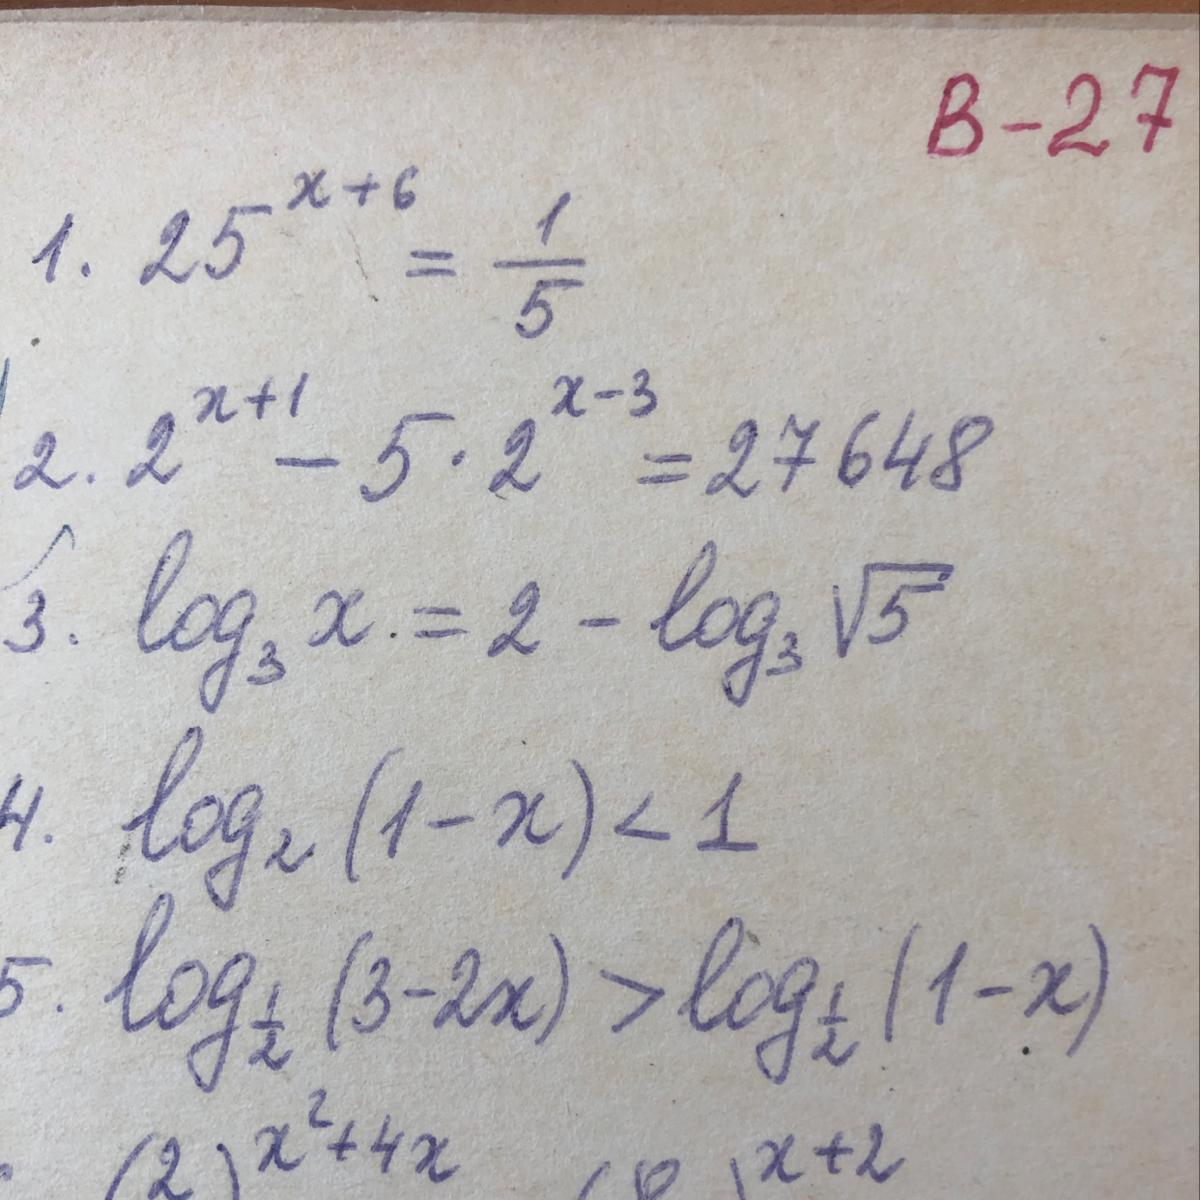 В-27
1. 25^{x+6} = \frac{1}{5}
2. 2^{x+1} - 5 · 2^{x-3} = 27648
3. log_3 x = 2 - log_3 √5
4. log_2 (1-x) < 1
5. log_{\frac{1}{2}} (3-2x) > log_{\frac{1}{2}} (1-x)
(2)^{x^2+4x} ( )^{x+2}